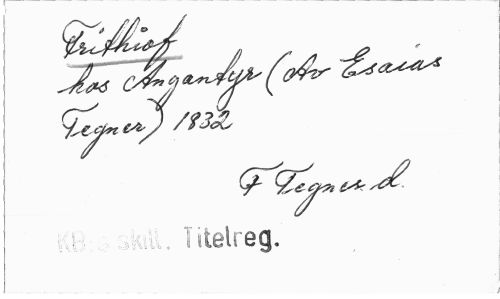 Frithiof
hos Angantyr (Av Esaias
Tegner) 1832
F Tegner. d.
KB:s skill. Titelreg.